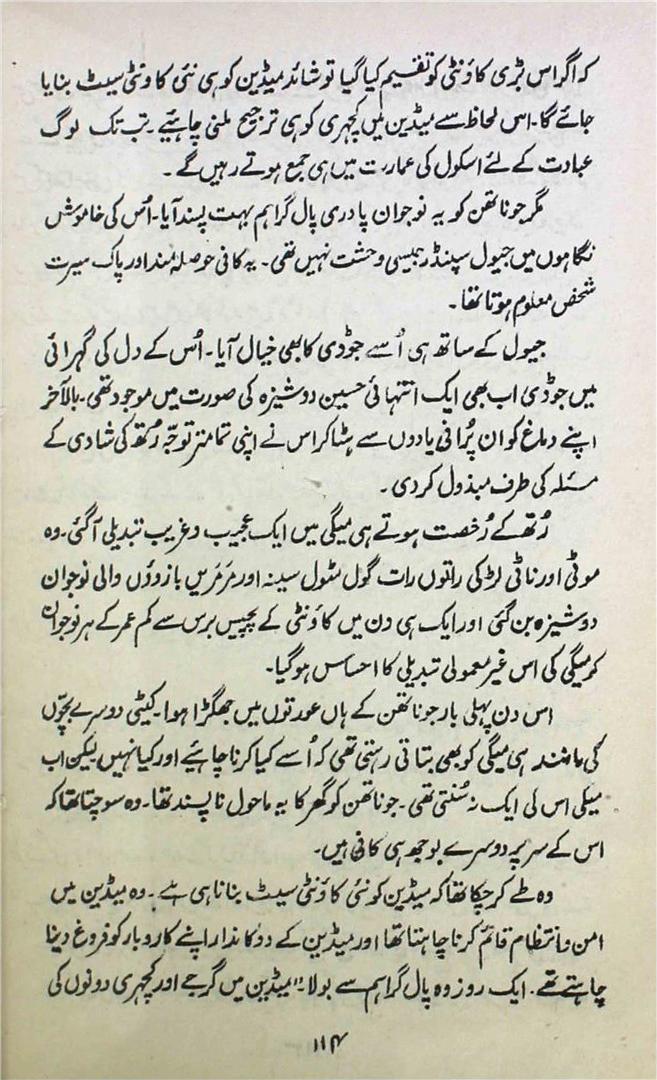 کہ اگر اس بڑی کاؤنٹی کو تقسیم کیا گیا تو شائد میڈین کو ہی نئی کاونٹی سیٹ بنایا
جائے گا۔ اس لحاظ سے میڈین میں کچہری کو ہی ترجیح ملنی چاہئیے۔ تب تک لوگ
عبادت کے لئے اسکول کی عمارت میں ہی جمع ہوتے رہیں گے۔
مگر جوناتھن کو یہ نوجوان پادری پال گراہم بہت پسند آیا۔ اُس کی خاموش
نگاہوں میں جیول سپنڈر جیسی وحشت نہیں تھی۔ یہ کافی حوصلہ مند اور پاک سیرت
شخص معلوم ہوتا تھا۔
جیول کے ساتھ ہی اُسے جوڈی کا بھی خیال آیا۔ اُس کے دل کی گہرائی
میں جوڈی اب بھی ایک انتہائی حسین دوشیزہ کی صورت میں موجود تھی۔ بالآخر
اپنے دماغ کو ان پُرانی یادوں سے ہٹا کر اس نے اپنی تمامتر توجّہ رُتھ کی شادی کے
مسئلہ کی طرف مبذول کر دی۔
رُتھ کے رُخصت ہوتے ہی میگی میں ایک عجیب و غریب تبدیلی آ گئی۔ وہ
موٹی اور ناٹی لڑکی راتوں رات گول سڈول سینہ اور مَرمَریں بازوؤں والی نوجوان
دوشیزہ بن گئی اور ایک ہی دن میں کاؤنٹی کے پچیس برس سے کم عمر کے ہر نوجوان
کو میگی کی اس غیر معمولی تبدیلی کا احساس ہو گیا۔
اس دن پہلی بار جوناتھن کے ہاں عورتوں میں جھگڑا ہوا۔ کیٹی دوسرے بچّوں
کی مانند ہی میگی کو بھی بتاتی رہتی تھی کہ اُسے کیا کرنا چاہئیے اور کیا نہیں لیکن اب
میگی اس کی ایک نہ سُنتی تھی۔ جوناتھن کو گھر کا یہ ماحول ناپسند تھا۔ وہ سوچتا تھا کہ
اس کے سر پر دوسرے بوجھ ہی کافی ہیں۔
وہ طے کر چکا تھا کہ میڈین کو نئی کاؤنٹی سیٹ بنانا ہی ہے۔ وہ میڈین میں
امن و انتظام قائم کرنا چاہتا تھا اور میڈین کے دوکاندار اپنے کاروبار کو فروغ دینا
چاہتے تھے۔ ایک روز وہ پال گراہم سے بولا۔ "میڈین میں گرجے اور کچہری دونوں کی
۱۱۴